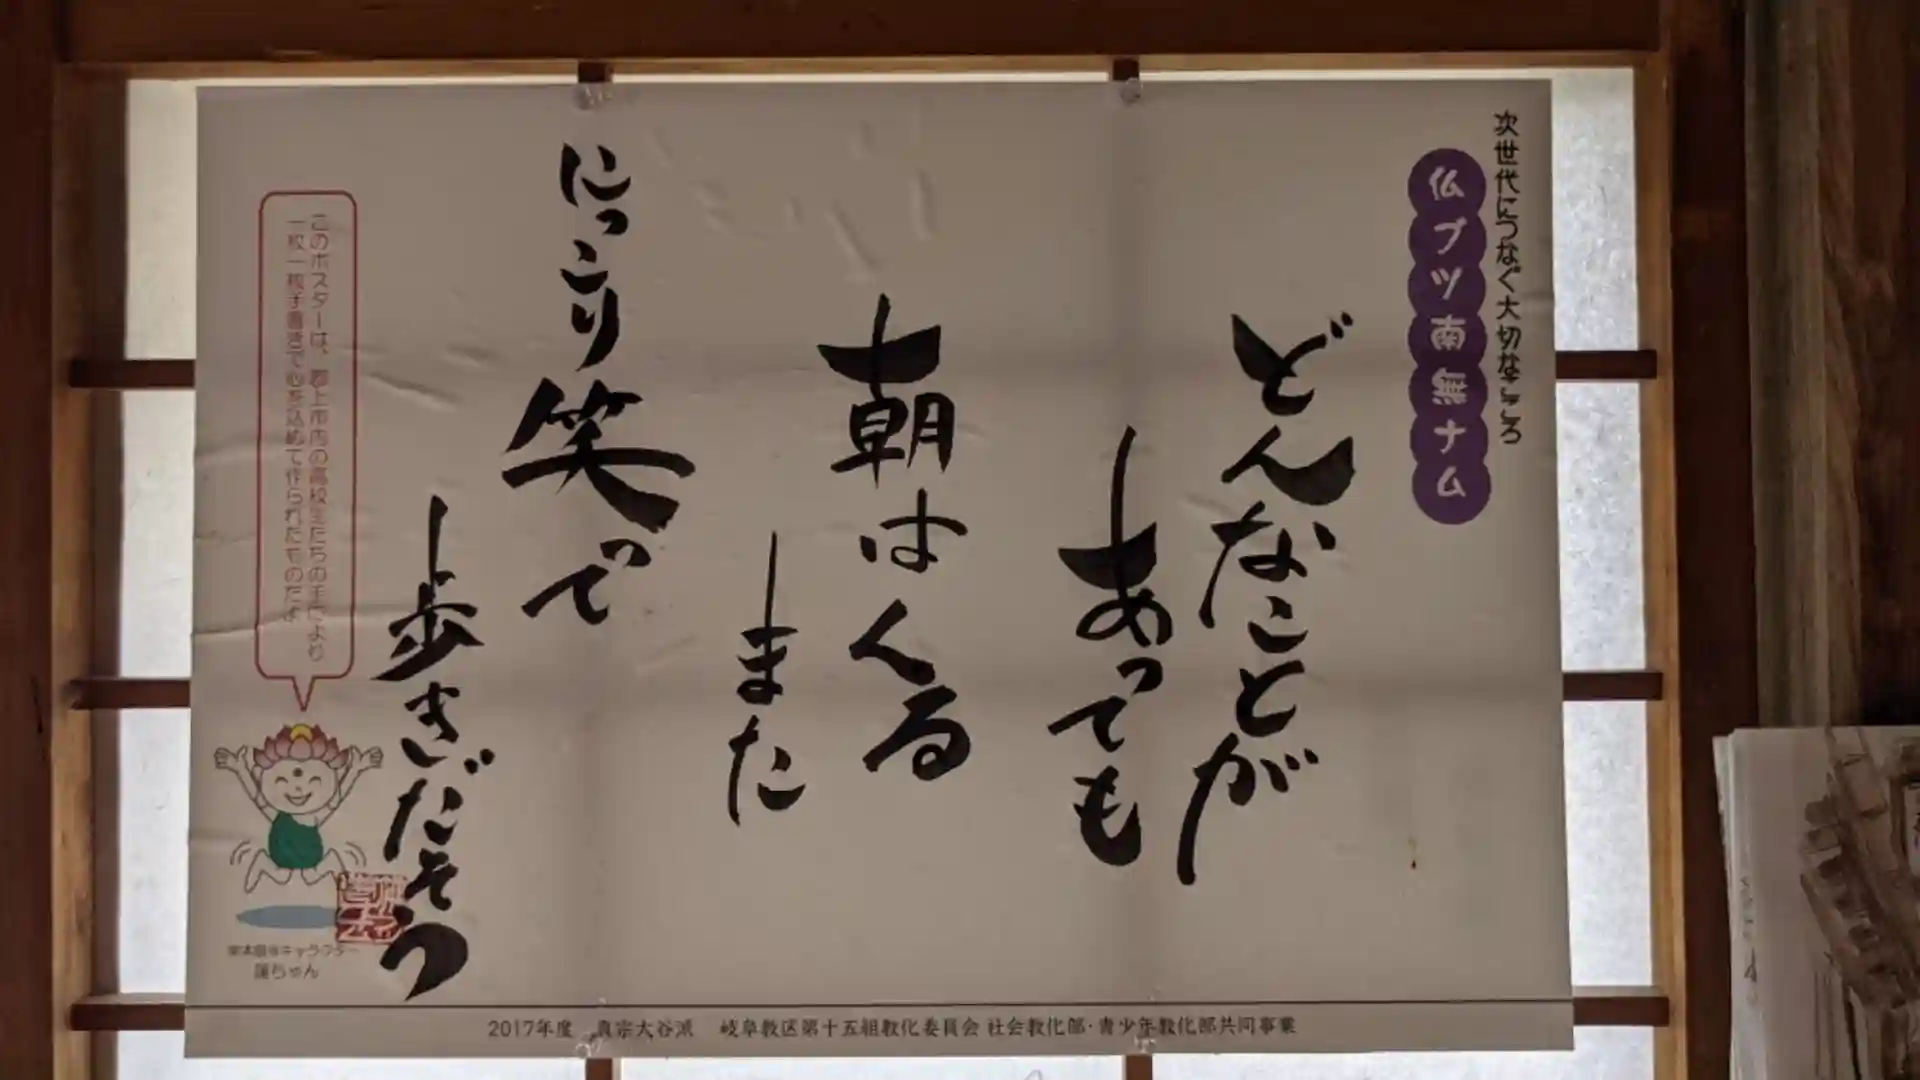 次世代につなぐ大切なこころ
仏ブツ南無ナム
どんなことが
あっても
朝はくる
また
にっこり笑って
歩きだそう
このポスターは、郡上市内の高校生たちの手により
一枚一枚手書きで心を込めて作られたものだよ
キャラクター
蓮ちゃん
2017年度 真宗大谷派 岐阜教区第十五組教化委員会 社会教化部・青少年教化部共同事業